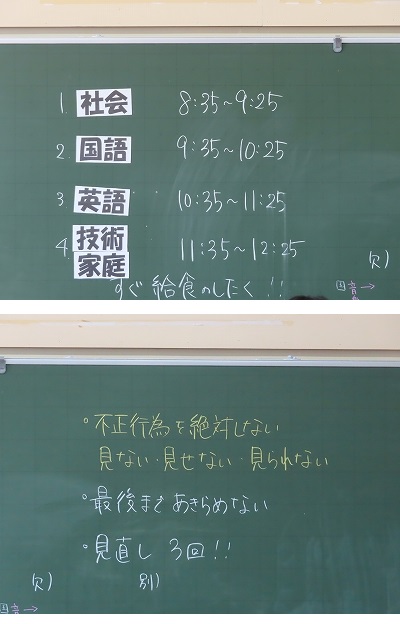 1. 社会 8:35~9:25
2. 国語 9:35~10:25
3. 英語 10:35~11:25
4. 技術 11:35~12:25
家庭
すぐ 給食のしたく!!
欠)
→
・不正行為を絶対しない
見ない・見せない・見られない
・最後まであきらめない
・見直し 3回!!
欠) 別)
→